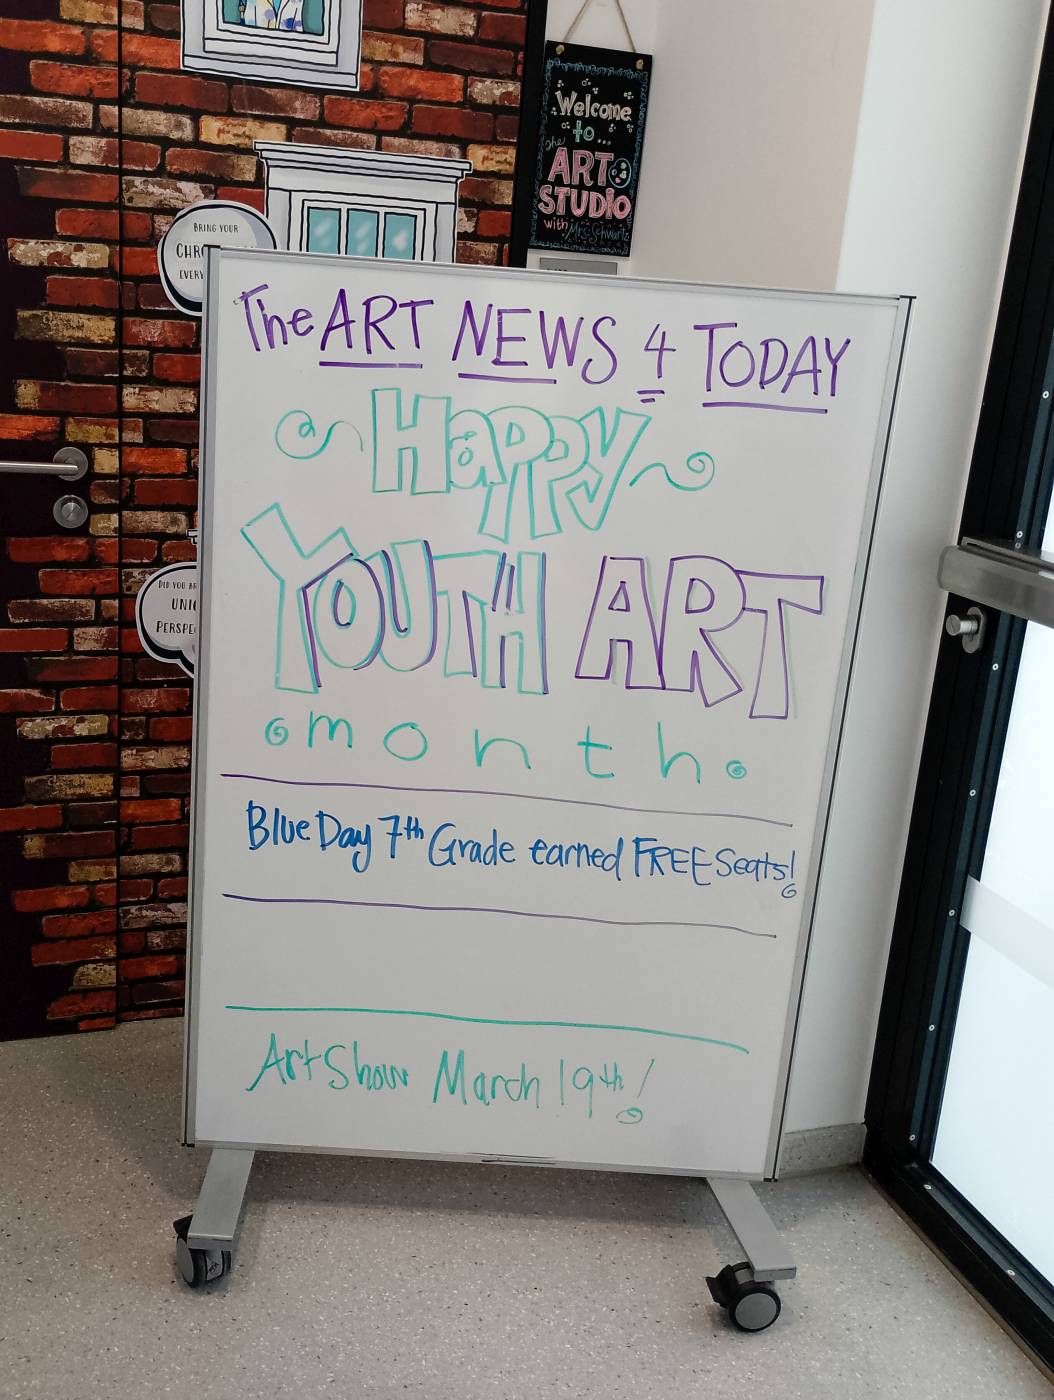 Welcome
to...
the
ART
STUDiO
with Mrs.
BRING YOUR
DID YOU
The ART NEWS 4 TODAY
Happy
YOUTH ART
month
Blue Day 7th Grade earned FREE Seats!
Art Show March 19th!